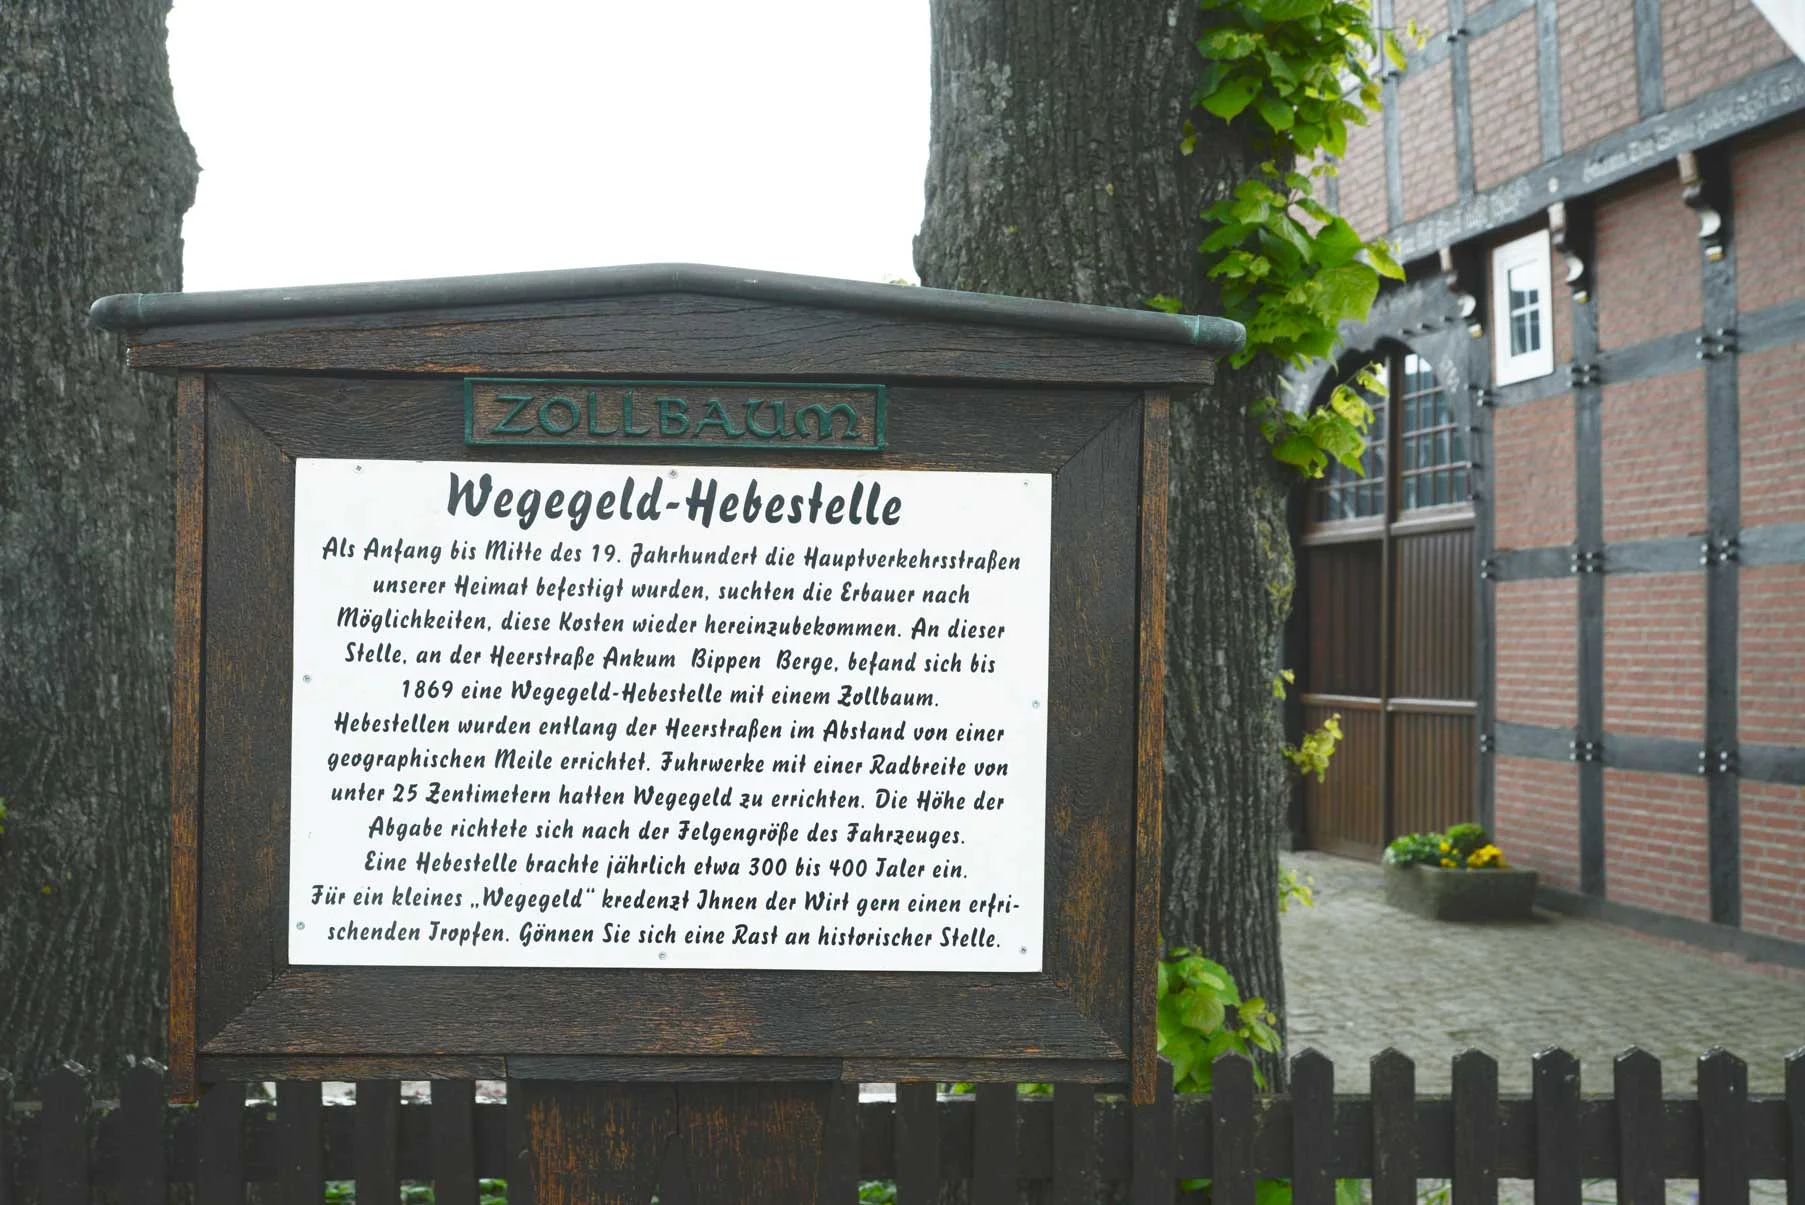 ZOLLBAUM
Wegegeld-Hebestelle
Als Anfang bis Mitte des 19. Jahrhundert die Hauptverkehrsstraßen
unserer Heimat befestigt wurden, suchten die Erbauer nach
Möglichkeiten, diese Kosten wieder hereinzubekommen. An dieser
Stelle, an der Heerstraße Ankum Bippen Berge, befand sich bis
1869 eine Wegegeld-Hebestelle mit einem Zollbaum.
Hebestellen wurden entlang der Heerstraßen im Abstand von einer
geographischen Meile errichtet. Fuhrwerke mit einer Radbreite von
unter 25 Zentimetern hatten Wegegeld zu errichten. Die Höhe der
Abgabe richtete sich nach der Felgengröße des Fahrzeuges.
Eine Hebestelle brachte jährlich etwa 300 bis 400 Taler ein.
Für ein kleines „Wegegeld“ kredenzt Ihnen der Wirt gern einen erfri-
schenden Tropfen. Gönnen Sie sich eine Rast an historischer Stelle.